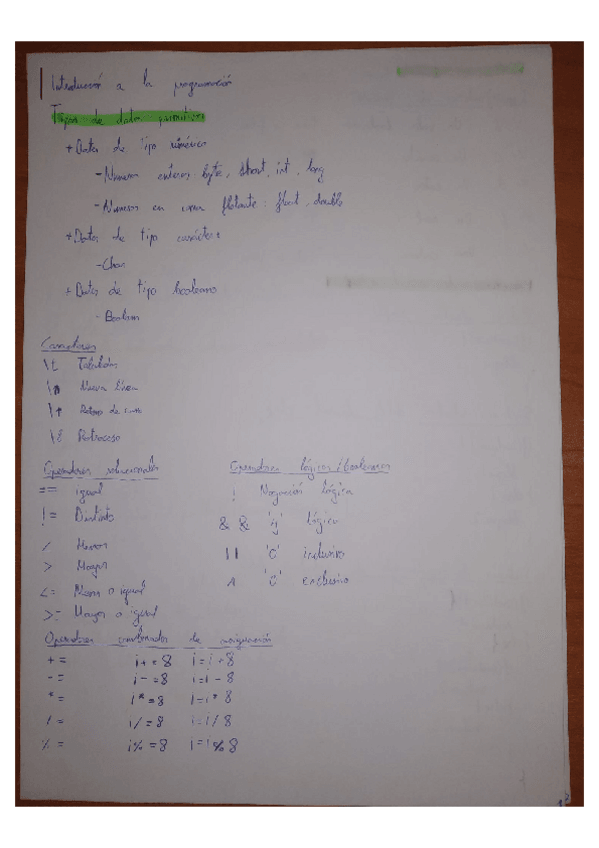 Introducción a la programación
Tipos de datos primitivos
+ Datos de tipo numérico
- Numeros enteros byte, short, int, long
- Numeros en coma flotante: float, double
+ Datos de tipo carácter
- Char
+ Datos de tipo booleano
- Boolean
Caracteres
\t Tabulación
\n Nueva línea
\r Retorno de carro
\b Retroceso
Operadores relacionales
== igual
!= Distinto
< Menor
> Mayor
<= Menor o igual
>= Mayor o igual
Operadores lógicos/booleanos
! Negación lógica
&& 'y' lógico
|| 'o' inclusivo
^ 'o' exclusivo
Operadores combinados de asignación
+= i+=8 i=i+8
-= i-=8 i=i-8
*= i*=8 i=i*8
/= i/=8 i=i/8
%= i%=8 i=i%8